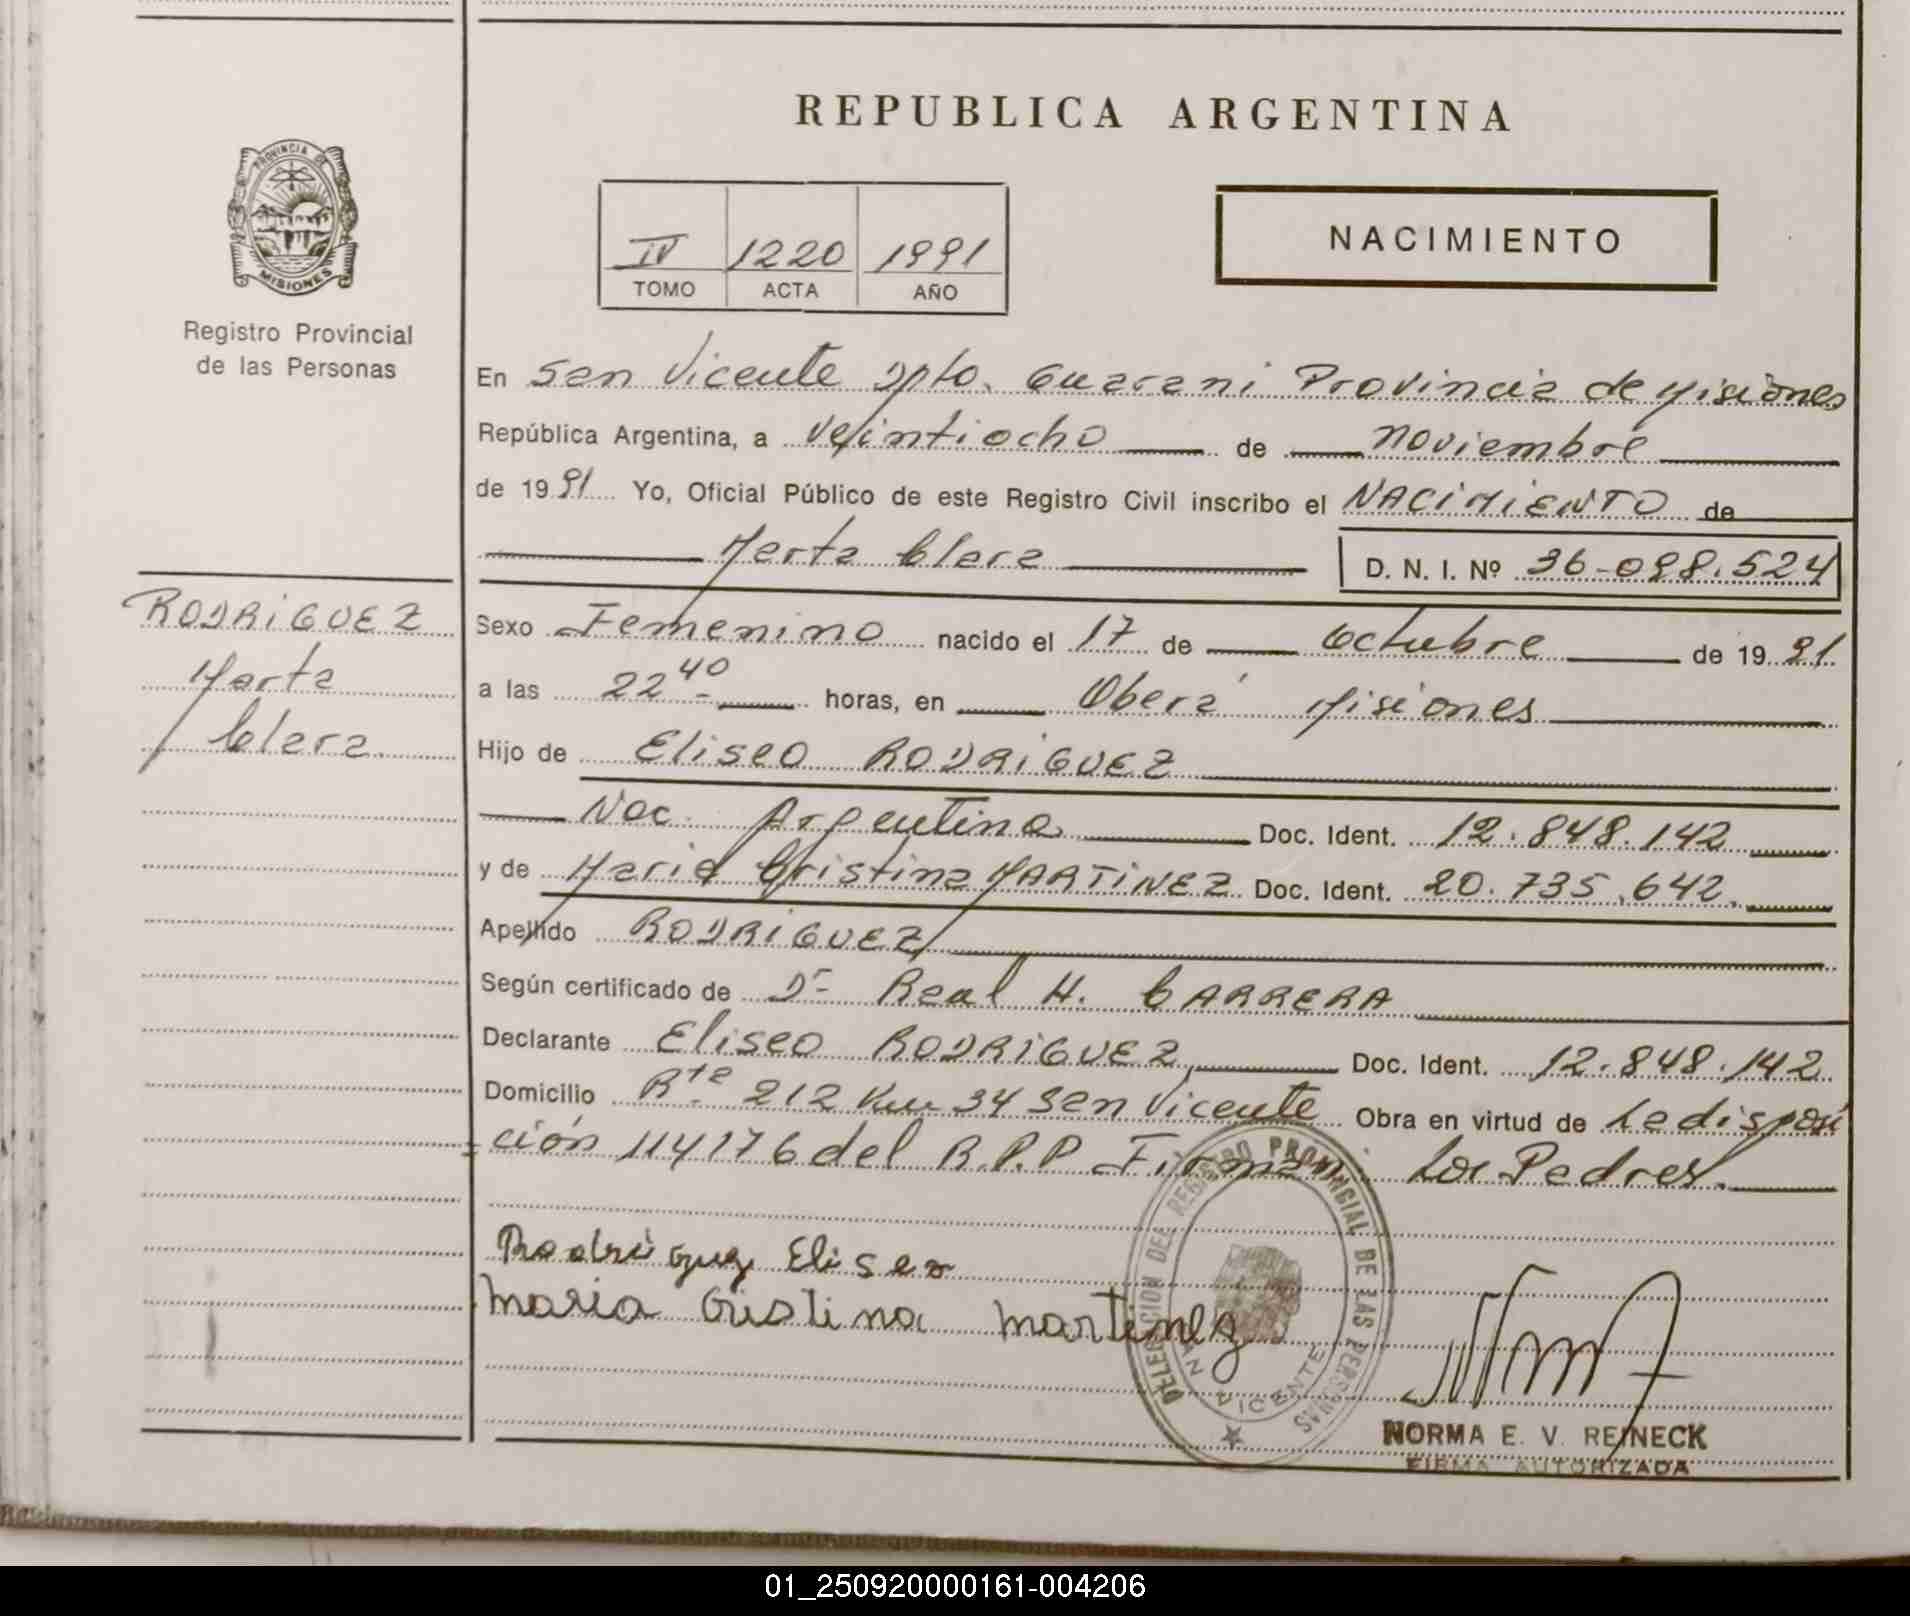 REPUBLICA ARGENTINA
PROVINCIA DE
MISIONES
Registro Provincial
de las Personas
IV 1220 1991
TOMO ACTA AÑO
NACIMIENTO
En San Vicente Dpto. Guarani Provincia de Misiones
República Argentina, a veintiocho de noviembre
de 1991 Yo, Oficial Público de este Registro Civil inscribo el NACIMIENTO de
Marta Clara D. N. I. Nº 36.098.524
RODRIGUEZ
Marta
Clara
Sexo Femenino nacido el 17 de Octubre de 1991
a las 22 40 horas, en Oberá Misiones
Hijo de Eliseo RODRIGUEZ
Nac. Argentina Doc. Ident. 12.848.142
y de Maria Cristina MARTINEZ Doc. Ident. 20.735.642.
Apellido RODRIGUEZ
Según certificado de Dr Real H. CARRERA
Declarante Eliseo RODRIGUEZ Doc. Ident. 12.848.142
Domicilio Rta 212 Km 34 San Vicente Obra en virtud de La disposi
ción 114176 del R.P.P Firman Los Padres.
Rodriguez Eliseo
Maria Cristina Martinez
DELEGACION DEL REGISTRO PROVINCIAL DE LAS PERSONAS
SAN VICENTE
NORMA E. V. REINECK
FIRMA AUTORIZADA
01_250920000161-004206